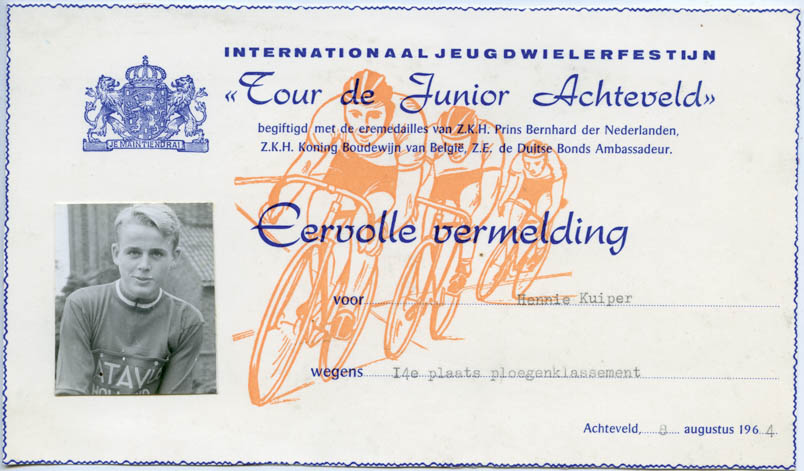 INTERNATIONAAL JEUGDWIELERFESTIJN
«Tour de Junior Achteveld»
begiftigd met de eremedailles van Z.K.H. Prins Bernhard der Nederlanden,
Z.K.H. Koning Boudewijn van België, Z.E. de Duitse Bonds Ambassadeur.
JE MAINTIENDRAI
Eervolle vermelding
voor Hennie Kuiper
wegens I4e plaats ploegenklassement
TAV
HOLLAND
Achteveld, 8 augustus 1964